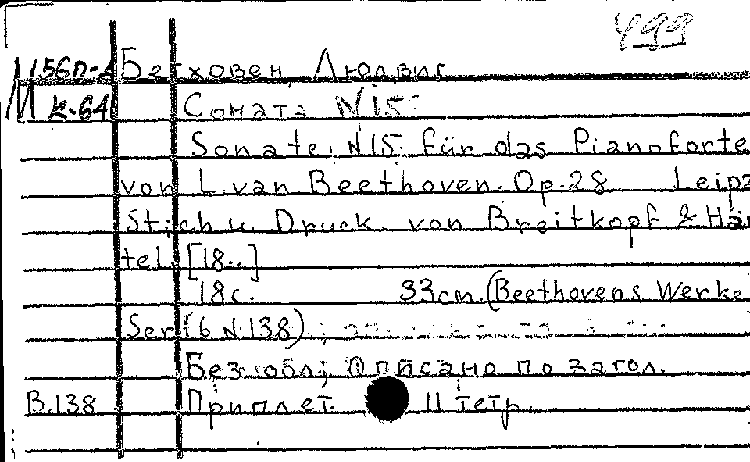 499
М156п-2 Бетховен, Людвиг
М к-64 Соната N15.
Sonate. N15. für das Pianoforte
von L. van Beethoven. Op. 28 Leipz
Stich u. Druck. von Breitkopf & Här
tel. [18..]
18c. 33cm. (Beethovens Werke
Ser (6 N.138) ;
Без обл; Описано по загол.
B.138 Приплет. 11 тетр.